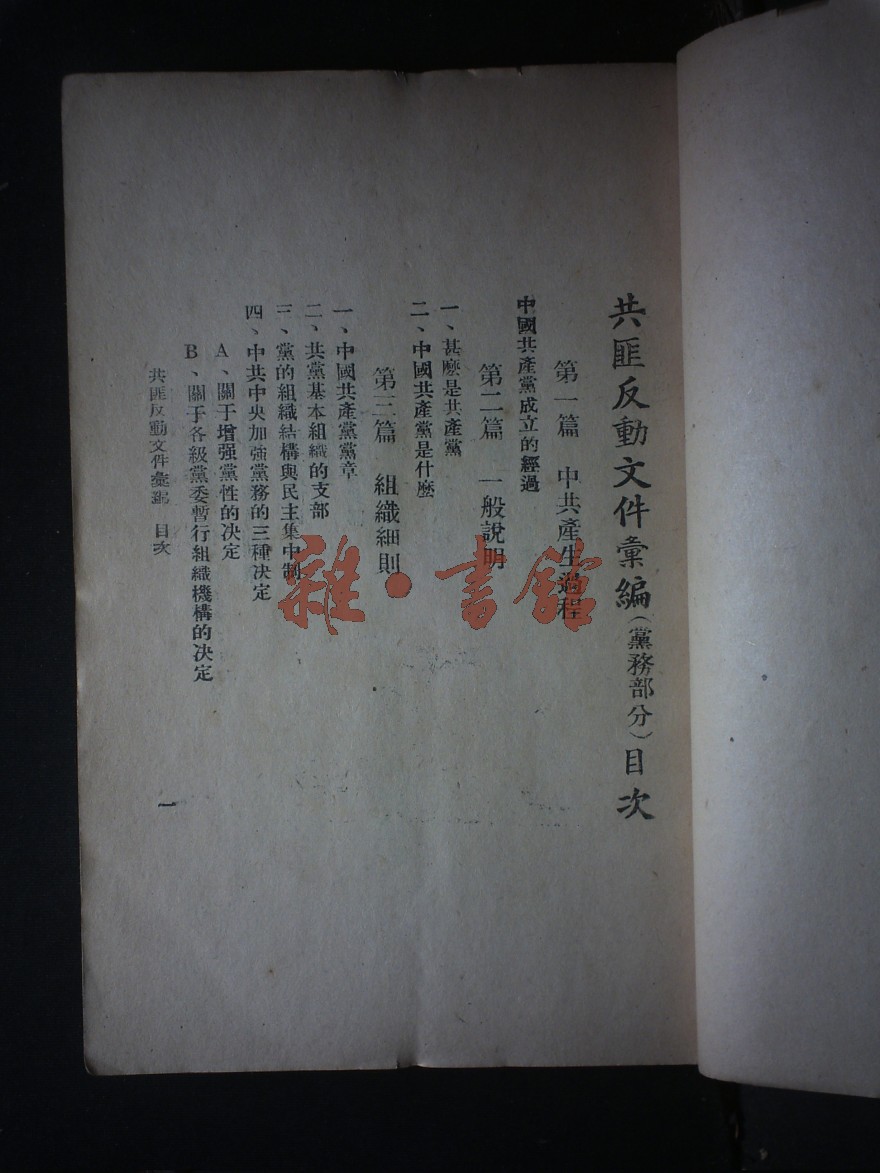 共匪反動文件彙編（黨務部分）目次
第一篇　中共產生過程
中國共產黨成立的經過
第二篇　一般說明
一、甚麼是共產黨
二、中國共產黨是什麼
第三篇　組織細則
一、中國共產黨黨章
二、共黨基本組織的支部
三、黨的組織結構與民主集中制
四、中共中央加強黨務的三種決定
A、關于增强黨性的決定
B、關于各級黨委暫行組織機構的決定
共匪反動文件彙編　目次
一
雜·書館